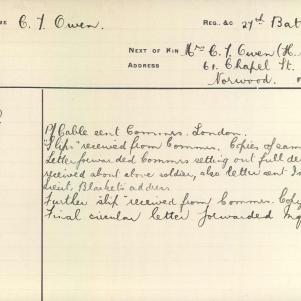 ME C. J. Owen. REG. &c 27th Batt
NEXT OF KIN Mrs C. J. Owen (H.
ADDRESS 61. Chapel St.
Norwood.
Cable sent Commrs. London.
"Slip" received from Commrs. Copies of same
Letter forwarded Commrs setting out full de
received about above soldier, also letter sent
address
Further slip received from Commrs. Copy
Final circular letter forwarded